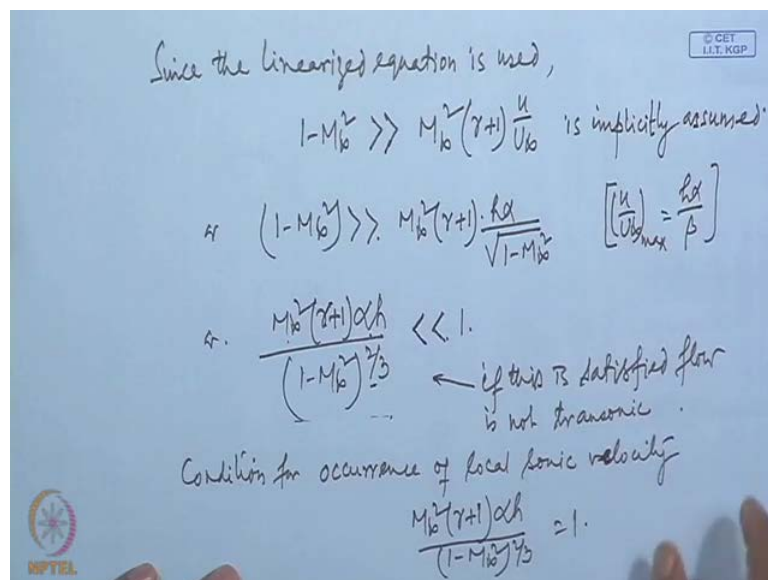 © CET
I.I.T. KGP
Since the linearized equation is used,
1-M∞² >> M∞²(γ+1) u/U∞ is implicitly assumed.
or (1-M∞²) >> M∞²(γ+1) · hα/√(1-M∞²) [(u/U∞)max = hα/β]
or. M∞²(γ+1)αh/(1-M∞²)^2/3 << 1.
← if this is satisfied flow
is not transonic.
Condition for occurrence of local sonic velocity
M∞²(γ+1)αh/(1-M∞²)^2/3 = 1.
NPTEL